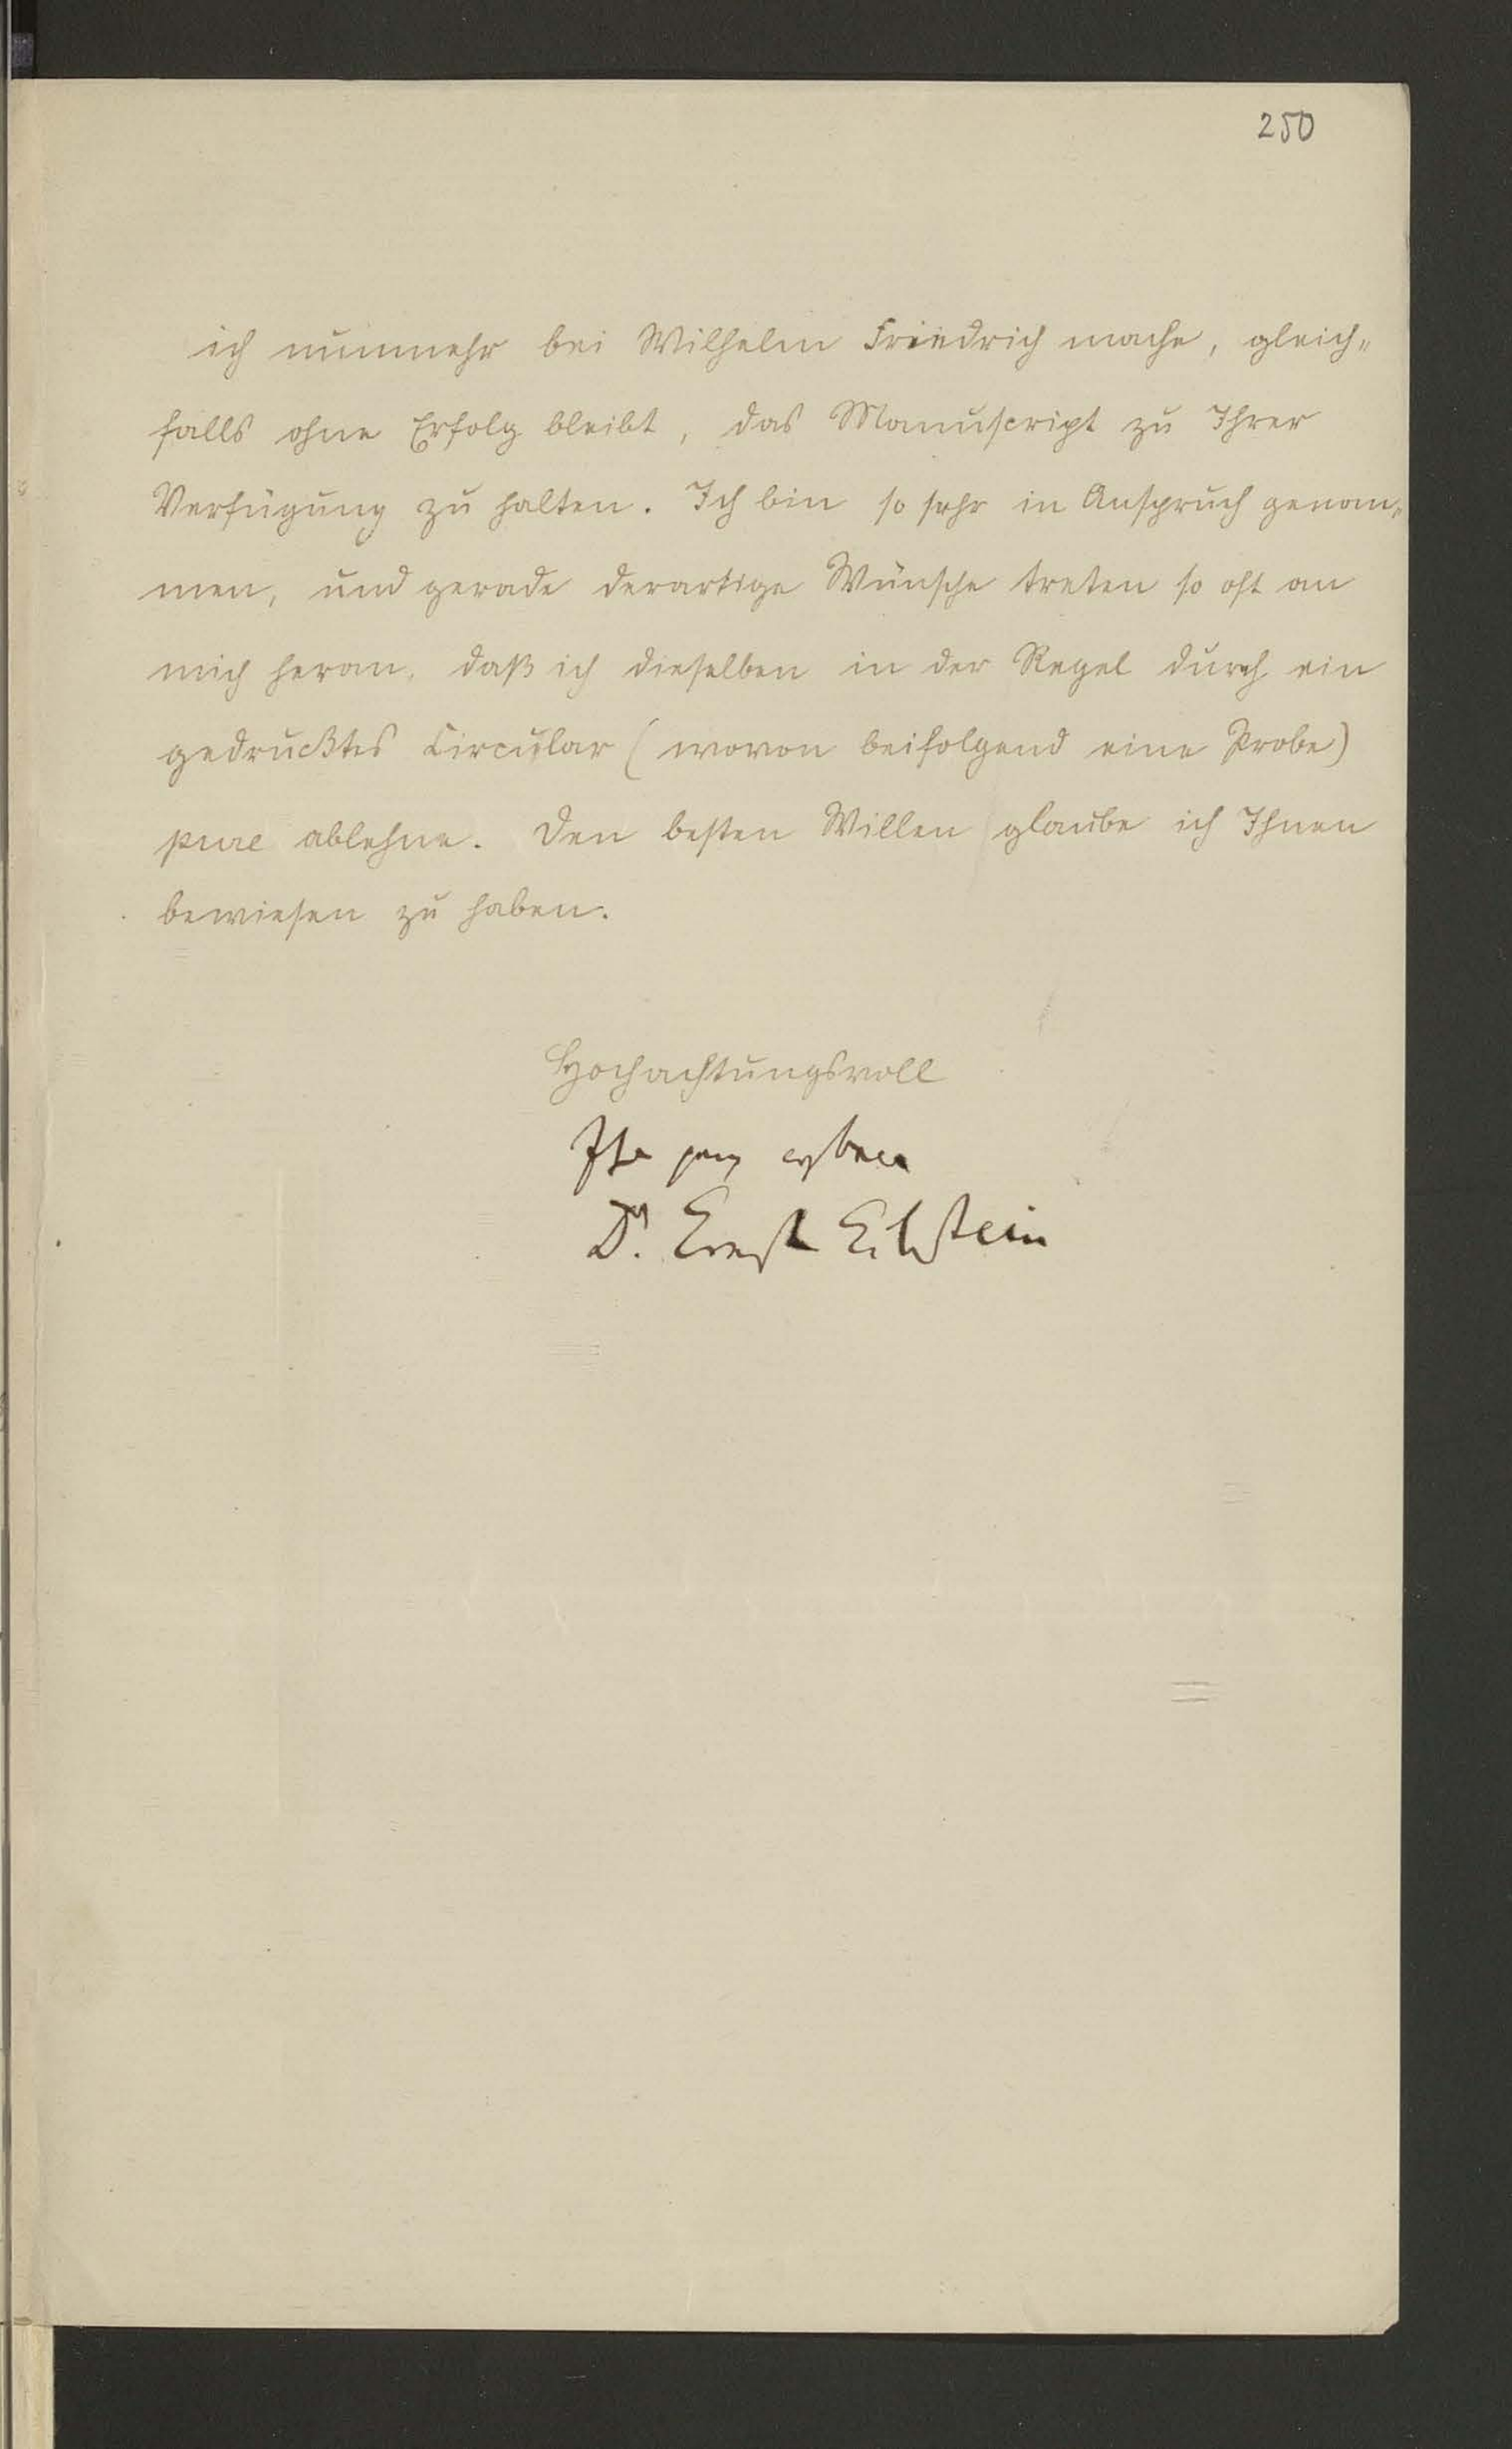 250
ich nunmehr bei Wilhelm Friedrich mache, gleich„
falls ohne Erfolg bleibt, das Manuscript zu Ihrer
Verfügung zu halten. Ich bin so sehr in Anspruch genom„
men, und gerade derartige Wünsche treten so oft an
mich heran, daß ich dieselben in der Regel durch ein
gedrucktes Circular (wovon beifolgend eine Probe)
pure ablehne. Den besten Willen glaube ich Ihnen
bewiesen zu haben.
Hochachtungsvoll
Ihr ganz ergebener
Dr. Ernst Eckstein